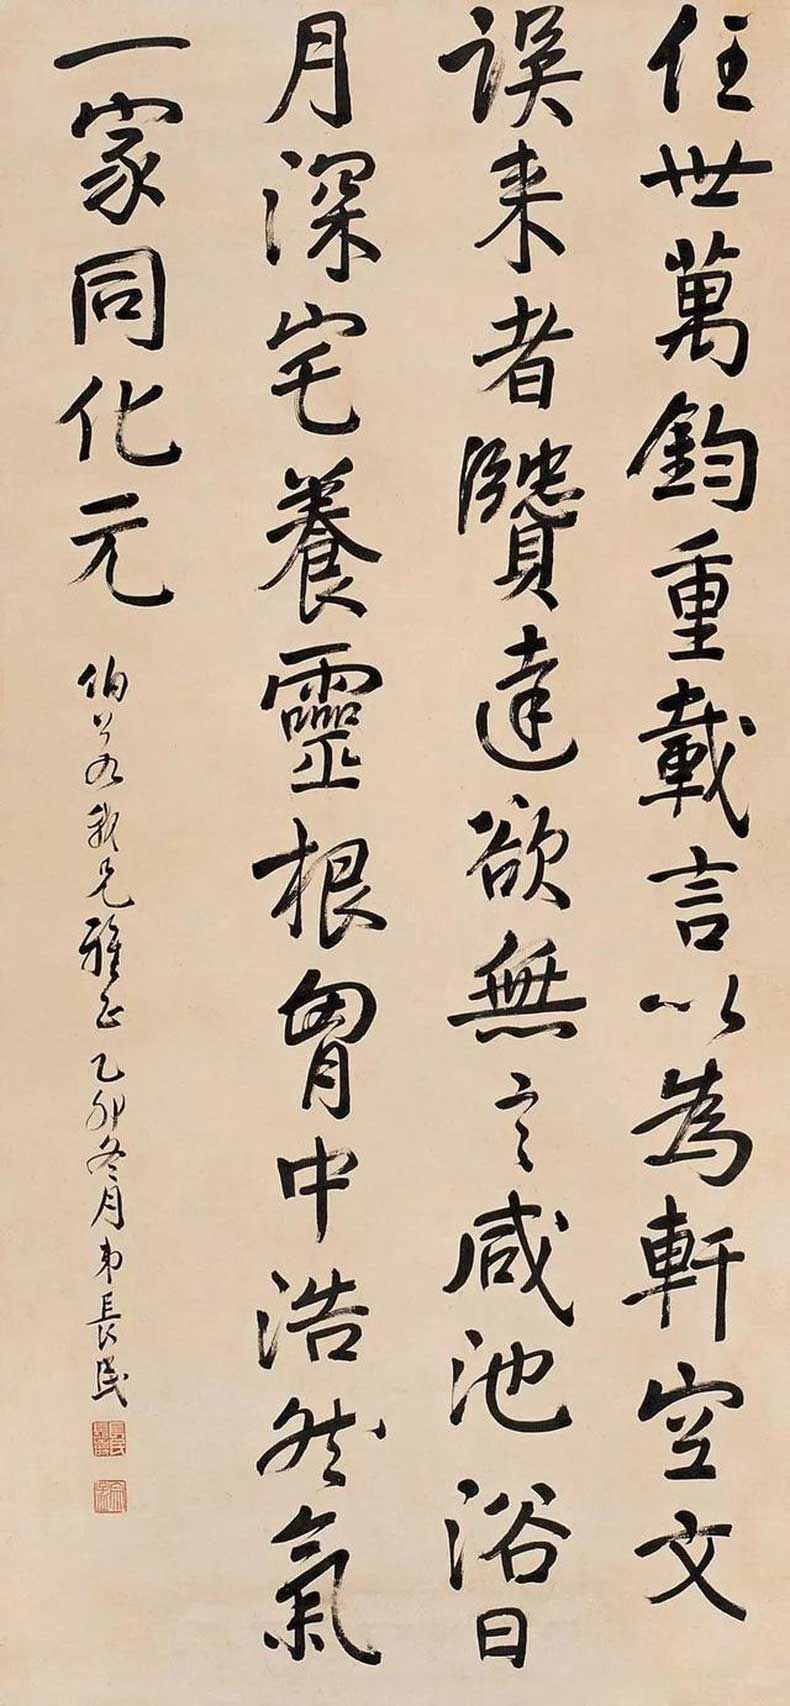 任世萬鈞重載言以為軒空文
誤来者贒達欲無言咸池浴日
月深宅養靈根胷中浩然氣
一家同化元
伯 我兄雅正 乙卯冬月弟長民